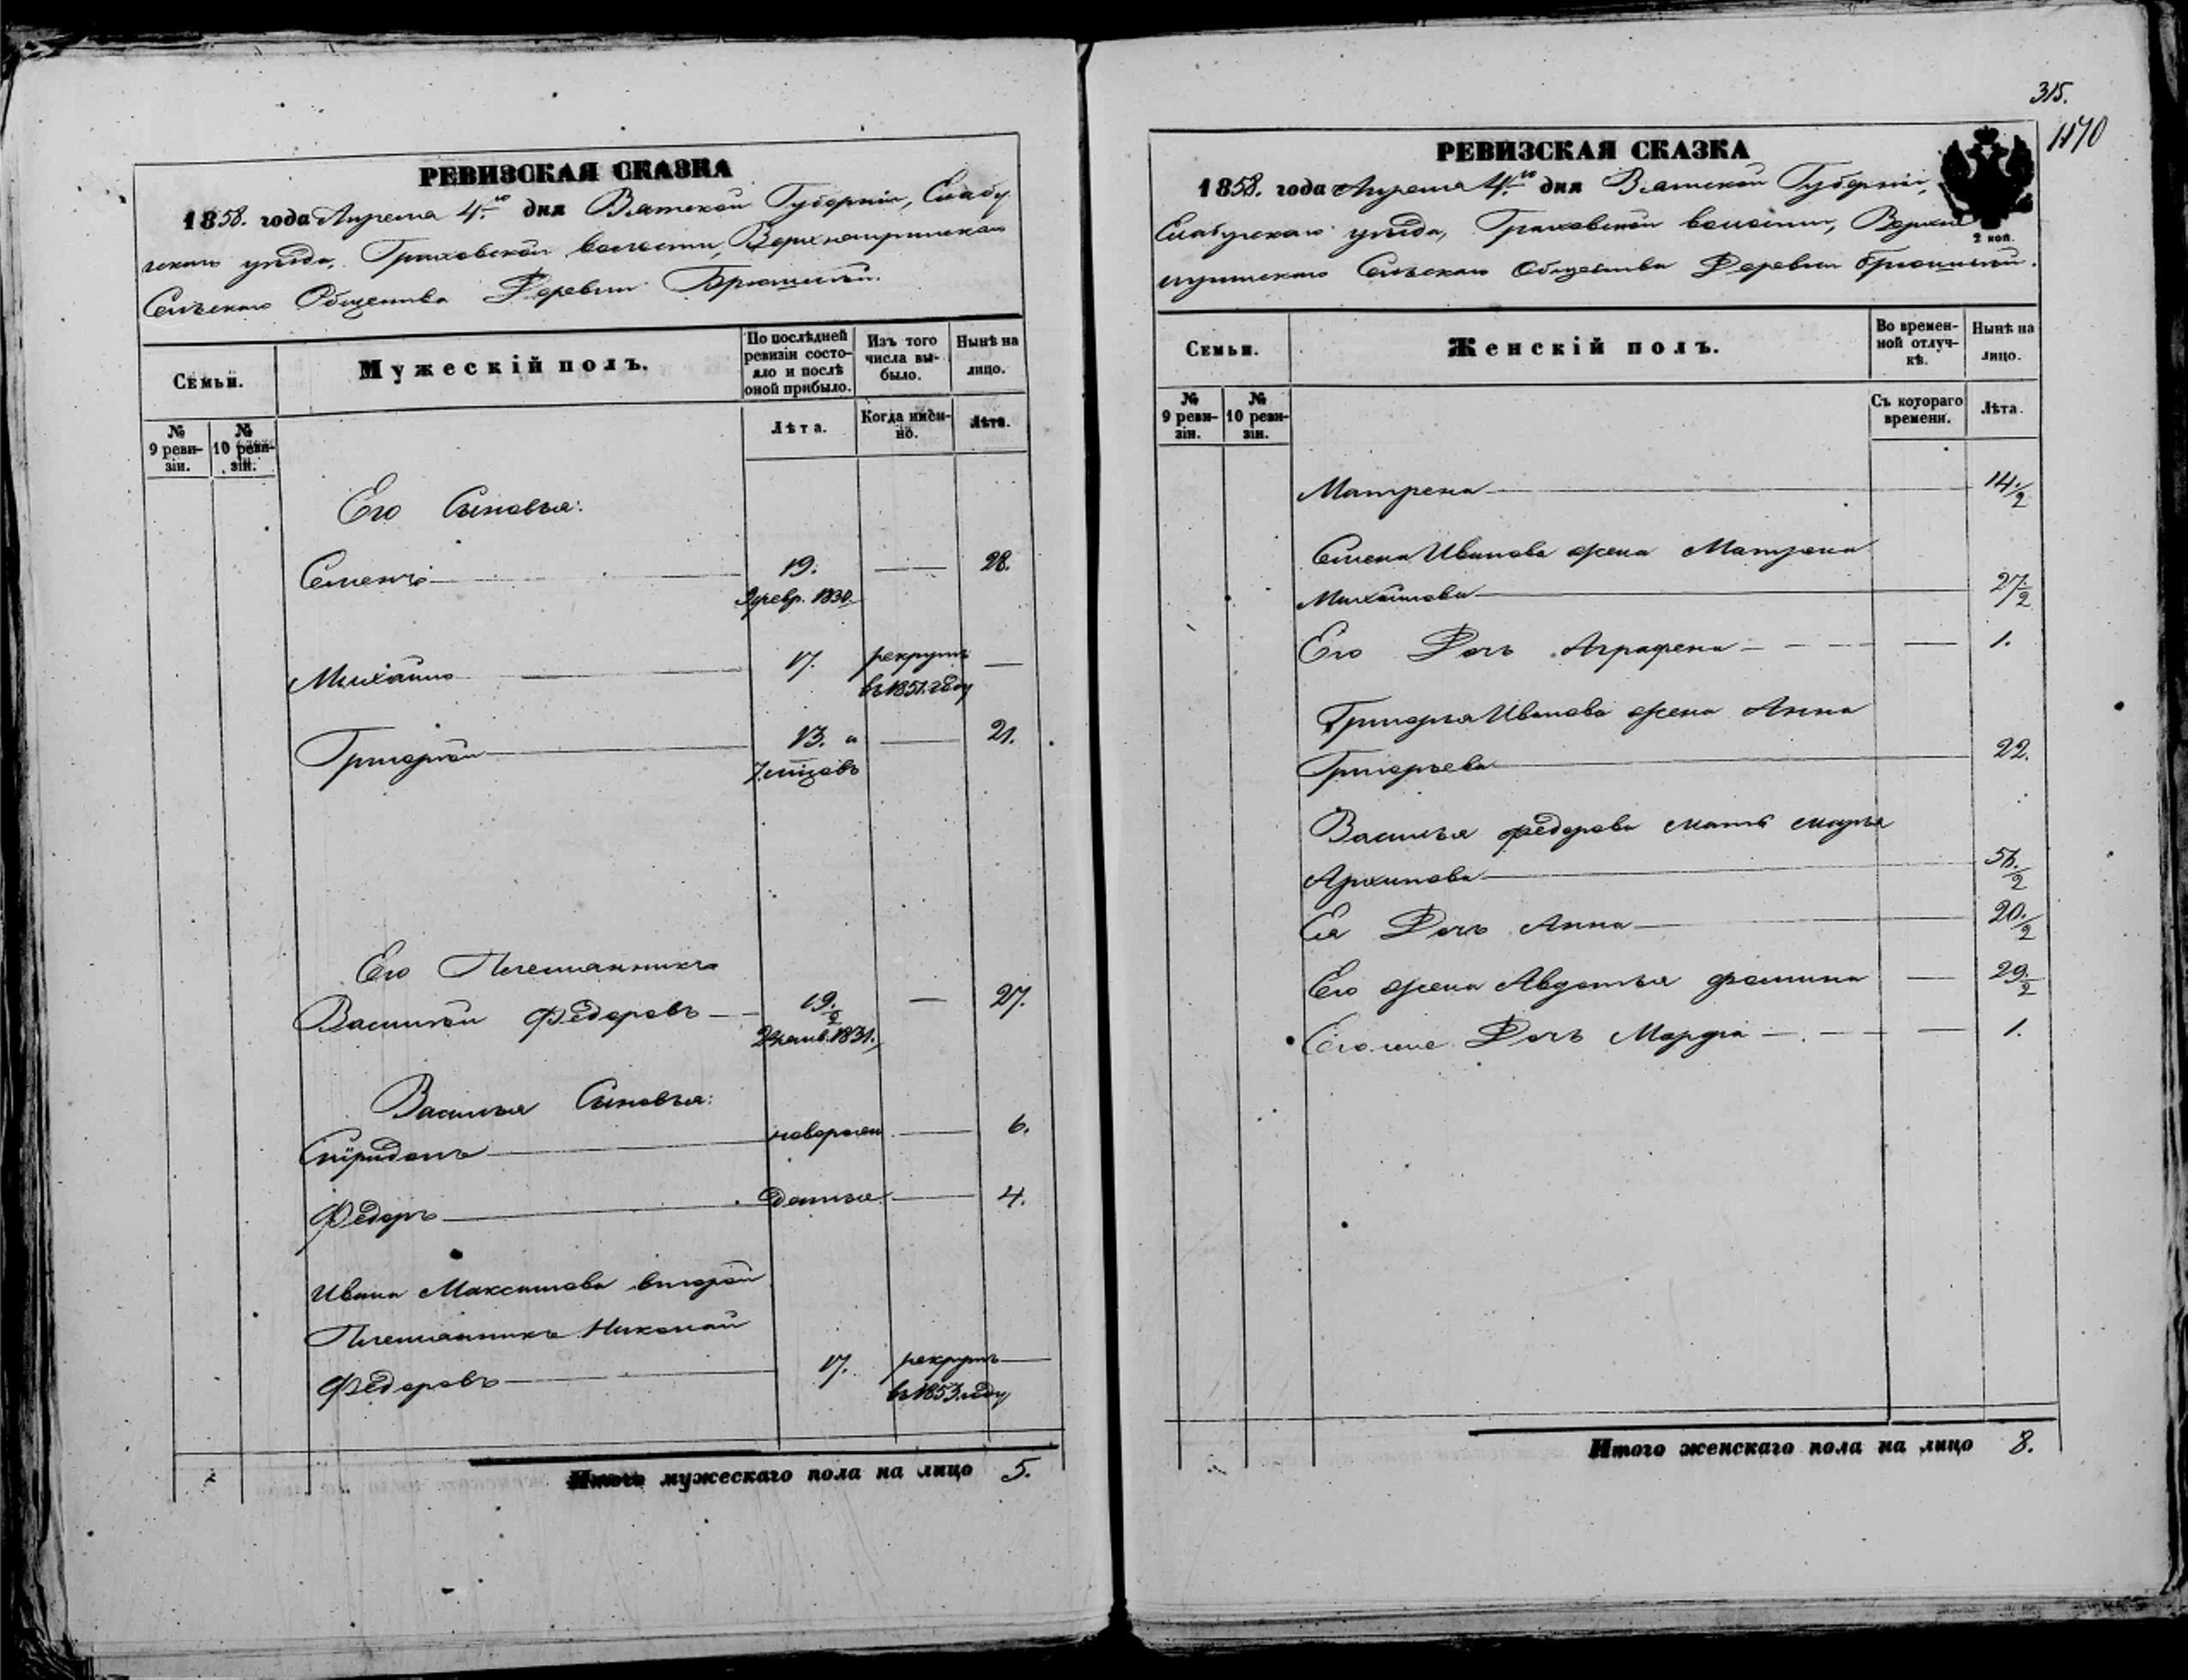 РЕВИЗСКАЯ СКАЗКА
1858. года Апреля 4.го дня Вятской Губерніи, Елабу
скаго уѣзда, Граховской волости,
Сельскаго Общества Деревни
Семьи.
Мужескій полъ.
По послѣдней ревизіи состояло и послѣ оной прибыло.
Изъ того числа выбыло.
Нынѣ на лицо.
№ 9 ревизіи.
№ 10 ревизіи.
Лѣта.
Когда именно.
Лѣта.
Его Сыновья:
Семенъ 19. — 28.
9 февр. 1830.
Михайло 17. рекрутъ —
въ 1851. году
Григорій 13. и — 21.
7. мцовъ
Его Племянникъ
Василій Федоровъ 19./2 — 27.
1831.
Василья Сыновья:
Спиридонъ новорожд — 6.
Федоръ — 4.
Ивана Максимова второй
Племянникъ Николай
Федоровъ 17. рекрутъ —
въ 1853. году
Итого мужескаго пола на лицо 5.
315.
1170
РЕВИЗСКАЯ СКАЗКА
1858. года Апреля 4.го дня Вятской Губерніи,
Елабугскаго уѣзда, Граховской волости, Верхне
2 коп.
Сельскаго Общества Деревни
Семьи.
Женскій полъ.
Во временной отлучкѣ.
Нынѣ на лицо.
№ 9 ревизіи.
№ 10 ревизіи.
Съ котораго времени.
Лѣта.
Матрена 14./2
Семена Иванова жена Матрена
Михайлова 27./2
Его Дочь Аграфена — 1.
Григорья Иванова жена Анна
Григорьева 22.
Василья Федорова мать Марья
Архипова 56./2
Ея Дочь Анна 20./2
Его жена Авдотья Фомина — 29./2
Его же Дочь Марфа — 1.
Итого женскаго пола на лицо 8.